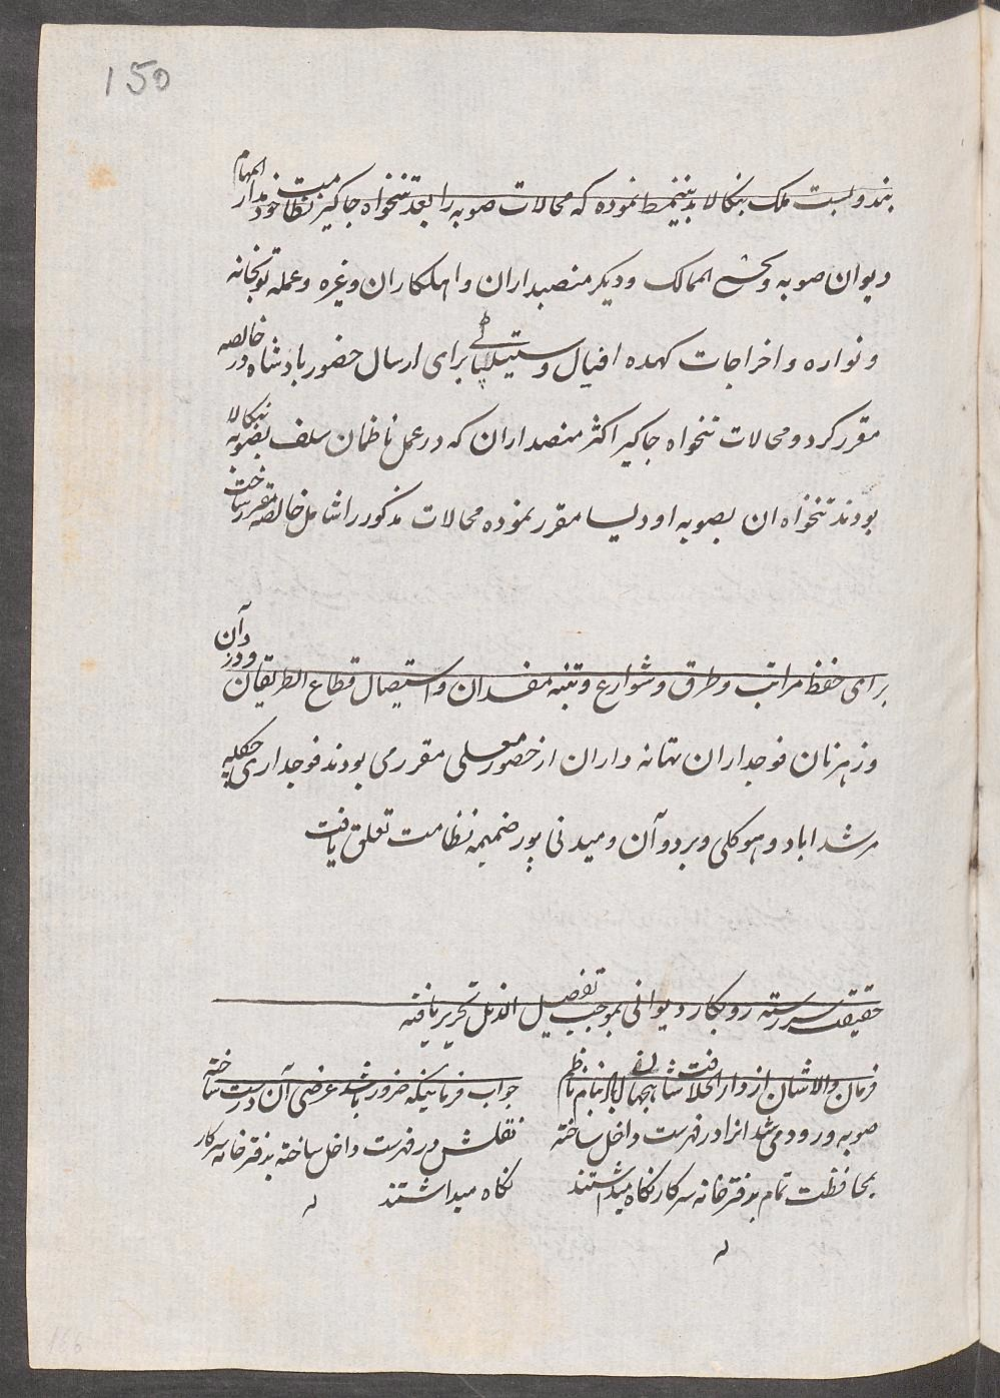 150
بندوبست ملک بنکالا بدینمط نموده که محالات صوبه را بعد تنخواه جاکیر نظامت خود مدار المهام
دیوان صوبه و بخشی الممالک و دیکر منصبداران و اهلکاران وغیره و عمله توبخانه
و نواره و اخراجات کهده افیال و ستیلپاٹی برای ارسال حضور بادشاه در خالصه
مقرر کرد و محالات تنخواه جاکیر اکثر منصبداران که در عمل ناظمان سلف بصوبه بنکالا
بودند تنخواه ان بصوبه اودیسا مقرر نموده محالات مذکور را شامل خالصه مقرر ساخت
برای حفظ مراتب و طرق و شوارع و تنبه مفسدان و استیصال قطاع الطریقان و دزدان
و زهزنان فوجداران تهانه داران از حضور معلی مقرر می بودند فوجداری چکلیه
مرشداباد و هوکلی و بردوآن و میدنی پور ضمیمه نظامت تعلق یافت
حقیقت سررشته روبکار دیوانی بموجب تفصیل الذیل تحریر یافته
فرمان والاشان از دارالخلافت شاهجهان اباد بنام ناظم
صوبه ورود می شد انرا در فهرست داخل ساخته
بمحافظت تمام بدفترخانه سرکار نکاه میداشتند
جواب فرمانیکه ضرور باشد عرضی آن درست ساخته
نقلش در فهرست داخل ساخته بدفترخانه سرکار
نکاه میداشتند